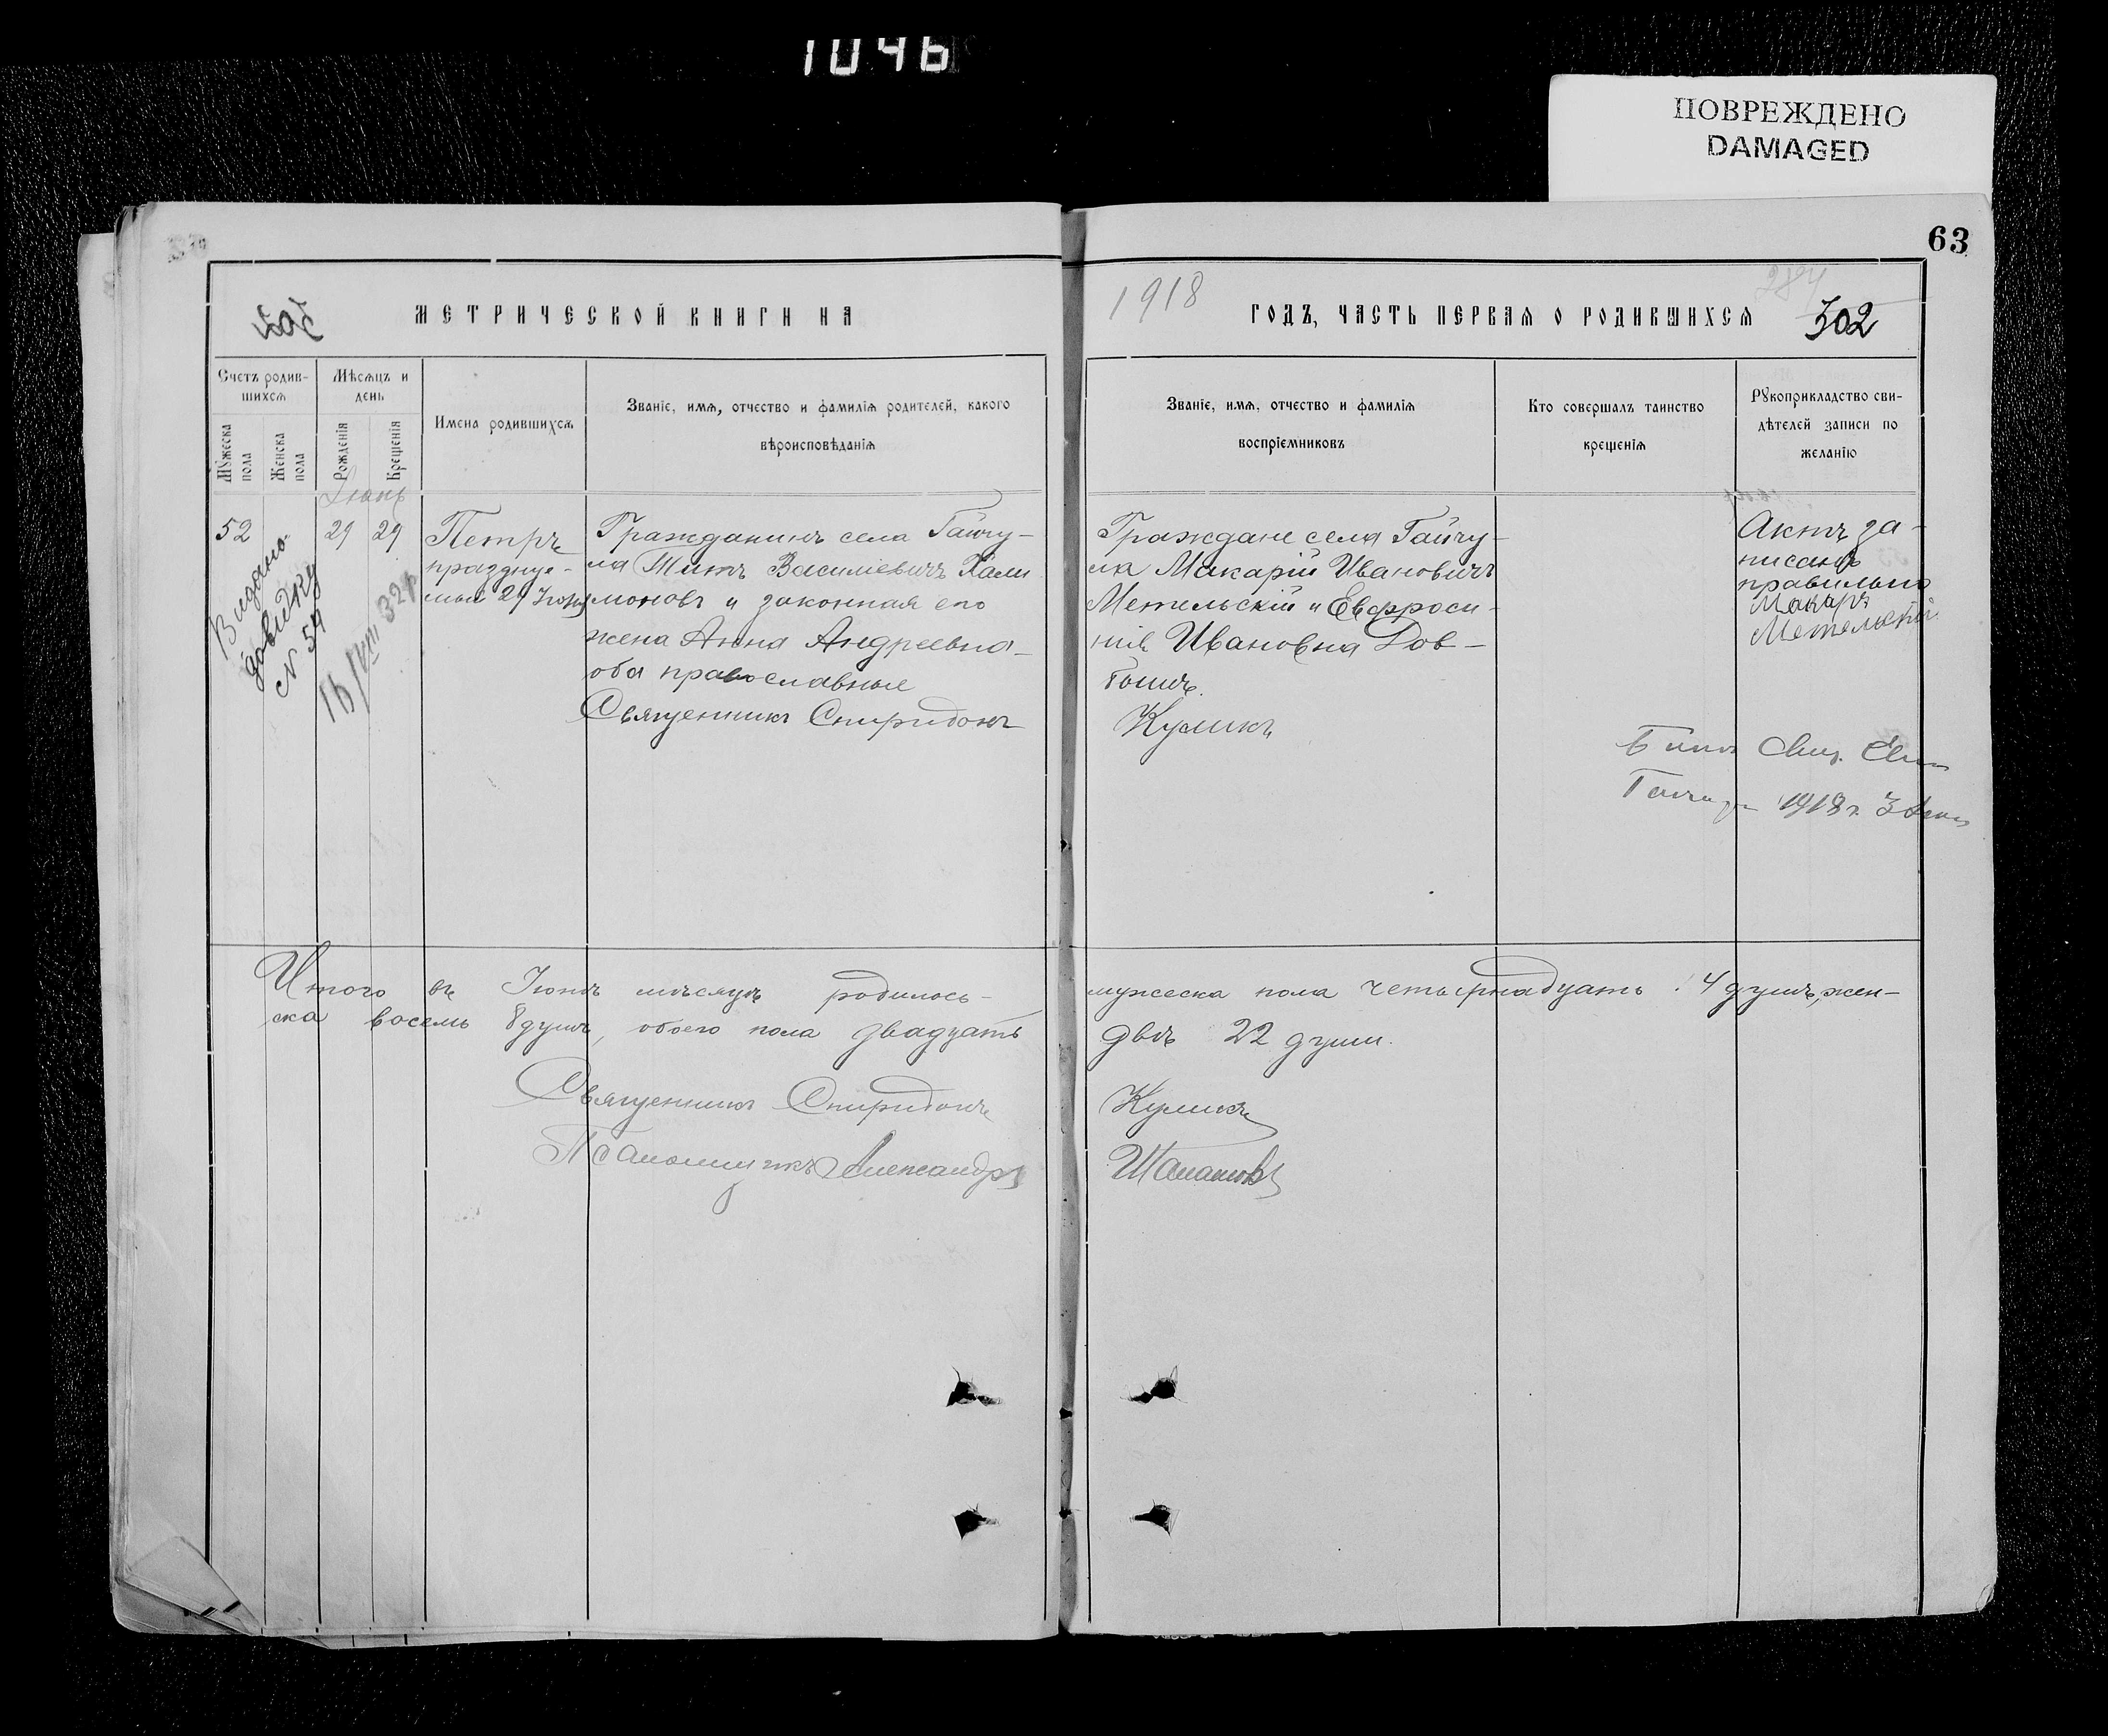 1046
ПОВРЕЖДЕНО
DAMAGED
63
МЕТРИЧЕСКОЙ КНИГИ НА
1918
ГОДЪ, ЧАСТЬ ПЕРВАЯ О РОДИВШИХСЯ
284
302
Счетъ родив-
шихся
Мужеска пола
Женска пола
Мѣсяцъ и
день
Рожденія
Крещенія
Имена родившихся
Званіе, имя, отчество и фамилія родителей, какого
вѣроисповѣданія
Званіе, имя, отчество и фамилія
воспріемниковъ
Кто совершалъ таинство
крещенія
Рукоприкладство сви-
дѣтелей записи по
желанію
Іюнь
52
29 29
Петръ
празднуе-
мый 29 Іюня
Гражданинъ села Гайчу-
ла Титъ Василіевичъ Хали
моновъ и законная его
жена Анна Андреевна
оба православные
Священникъ Спиридонъ
Граждане села Гайчу-
ла Макарій Ивановичъ
Метельскій и Евфроси-
нія Ивановна Дов-
Куликъ
Актъ за-
писанъ
правильно
Макаръ
Метельскій
Видано
довидку
N 59
16/VIII 32
1918 г.
Итого въ Іюнѣ мѣсяцѣ родилось
мужеска пола четырнадцать 14 душъ, жен-
ска восемь 8 душъ, обоего пола двадцать
двѣ 22 души.
Священникъ Спиридонъ
Куликъ
Псаломщикъ Александръ